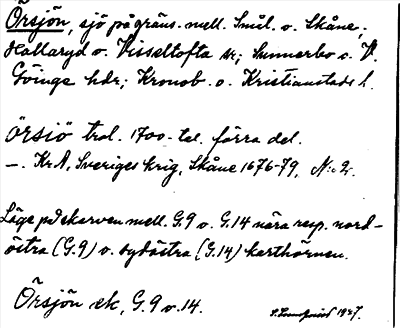 Örsjön, sjö på gräns. mell. Smål. o. Skåne;
Hallaryd o. Visseltofta sr; Sunnerbo o. V.
Göinge hdr; Kronob. o. Kristianstads l.
Örsiö trol. 1700-tal. förra del.
—. KrA, Sveriges krig, Skåne 1676-79, N:o 2.
Läge på skarven mell. G.9 o. G.14 nära resp. nord-
östra (G.9) o. sydöstra (G.14) karthörnen.
Örsjön ek, G.9 o. 14.
1927.